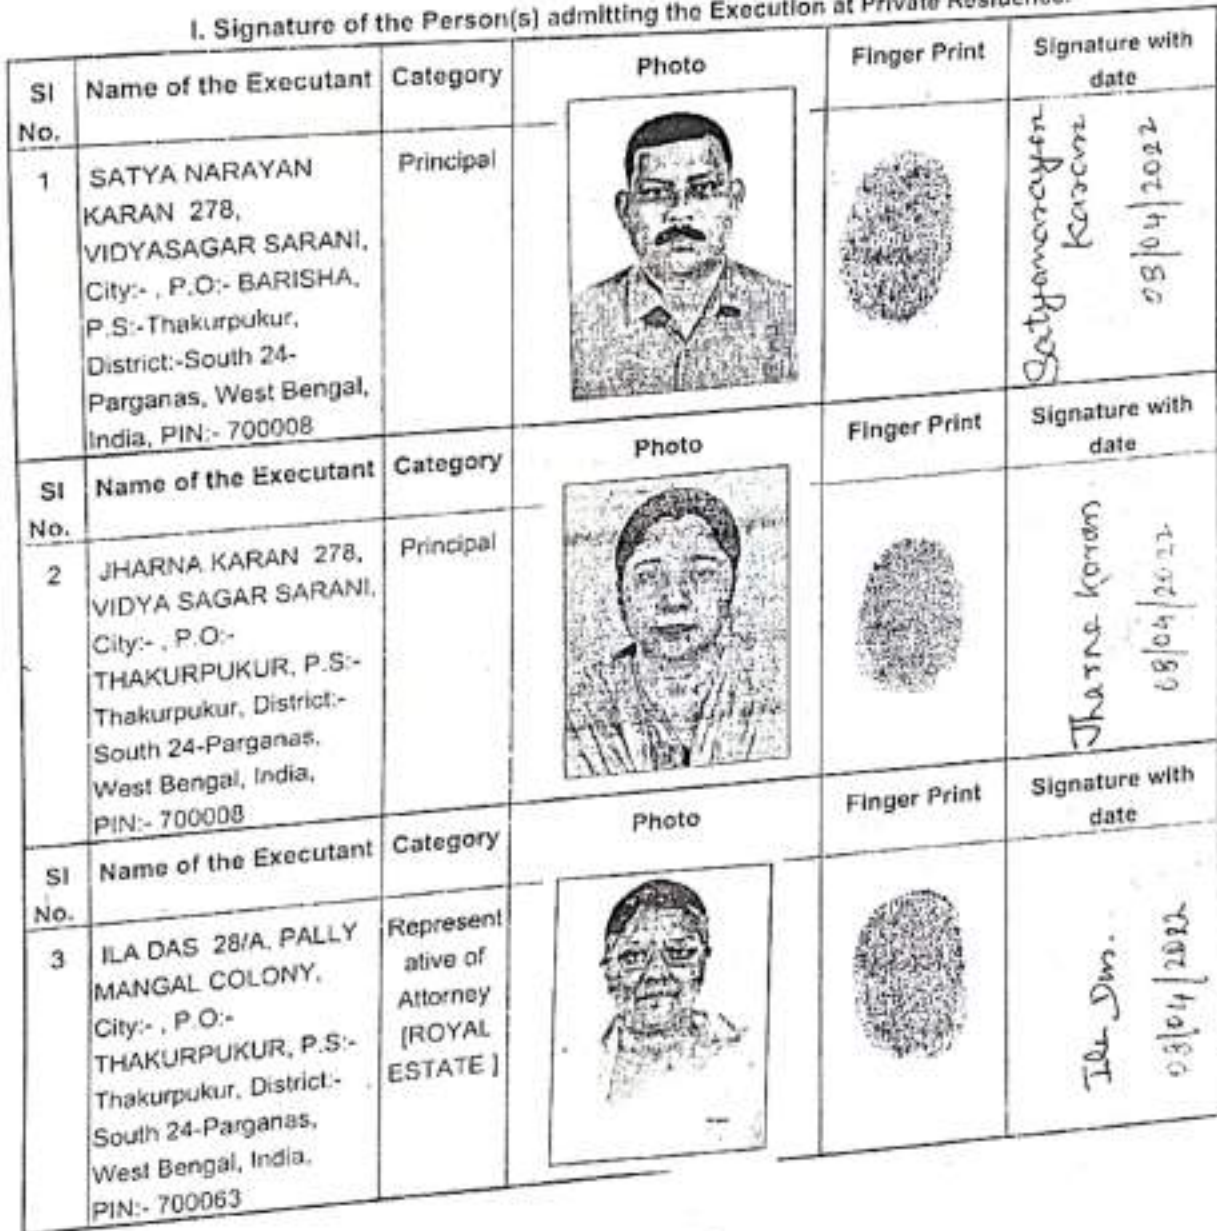 I. Signature of the Person(s) admitting the Execution at Private Residence.
Sl No.
Name of the Executant
Category
Photo
Finger Print
Signature with
date
1
SATYA NARAYAN
KARAN 278,
VIDYASAGAR SARANI,
City:- , P.O:- BARISHA,
P.S:-Thakurpukur,
District:-South 24-
Parganas, West Bengal,
India, PIN:- 700008
Principal
Satyanarayan
Karan
08/04/2022
Sl No.
Name of the Executant
Category
Photo
Finger Print
Signature with
date
2
JHARNA KARAN 278,
VIDYA SAGAR SARANI,
City:- , P.O:-
THAKURPUKUR, P.S:-
Thakurpukur, District:-
South 24-Parganas,
West Bengal, India,
PIN:- 700008
Principal
Jharna Karan
08/04/2022
Sl No.
Name of the Executant
Category
Photo
Finger Print
Signature with
date
3
ILA DAS 28/A, PALLY
MANGAL COLONY,
City:- , P.O:-
THAKURPUKUR, P.S:-
Thakurpukur, District:-
South 24-Parganas,
West Bengal, India,
PIN:- 700063
Represent
ative of
Attorney
[ROYAL
ESTATE ]
Ila Das.
08/04/2022